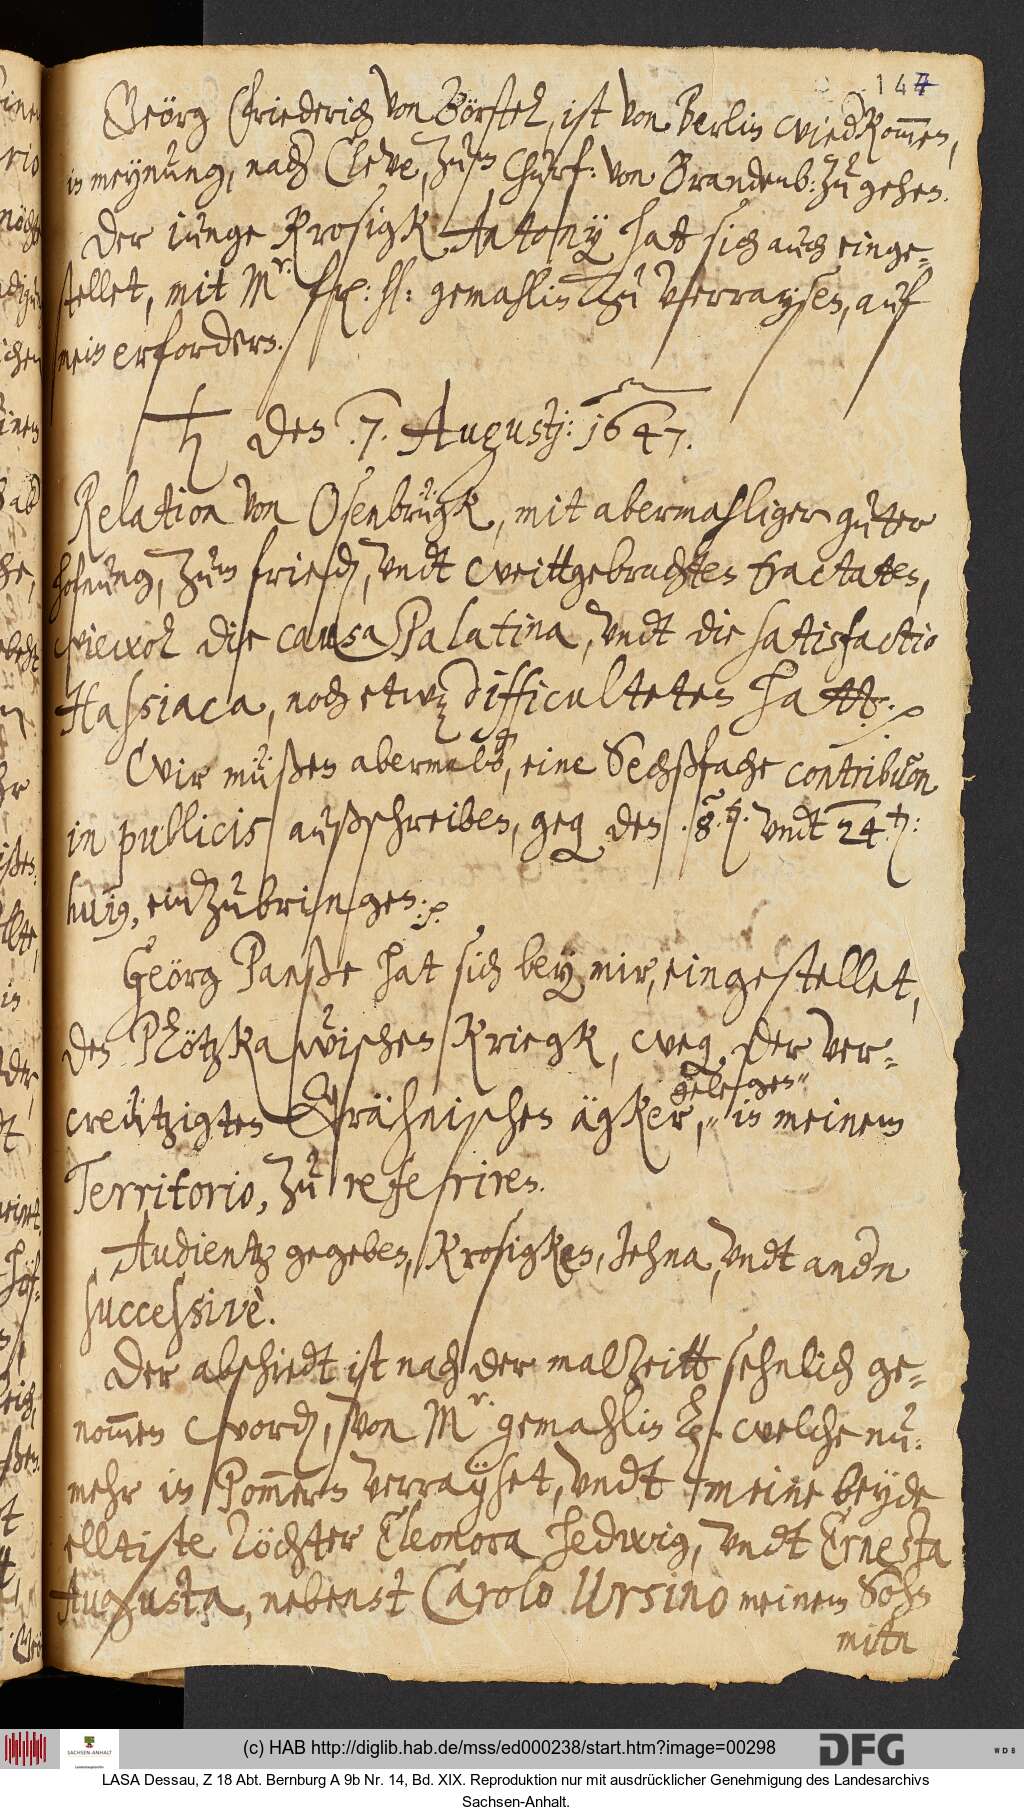 144
Geörg Friederich von Börstel, ist von Berlin wiedkom̅en,
in meynůng, nach Cleve, zům Chůrf: von Brandenb: zů gehen.
Der iůnge Krosigk Antony hat sich aůch einge-
stellet, mit Mr. fhl: hl: gemahlin zů verraysen, aůf
mein erforder̅n.
♄ den .7. Augustj: 1647.
Relation von Osenbrůgk, mit abermahliger gůter
hofnůng, zům friedḗ, vndt weittgebrachten tractaten,
wiewol die causa Palatina, vndt die satisfactio
Hassiaca, noch etw difficulteten hatt.
Wir můßen abermalß, eine Sechßfache contribuon
in publicis außschreiben, geg den .8.t. vndt 24.t:
huius, einzůbringen.
Geörg Panße hat sich bey mir, eingestellet,
den Plötzkawischen Kriegk, weg. der ver-
creůtzigten Gröhnischen ägker, gelegen
in meinem
Territorio, zů referiren.
Audientz gegeben, Krosigken, Jehna, vndt andn
successivè.
Der abschiedt ist nach der malzeitt sehnlich ge-
nom̅en word, von Mr. gemahlin welche nů-
mehr in Pom̅ern verrayset, vndt meine beyde
elltiste Töchter Eleonora Hedwig, vndt Ernesta
Augusta, nebenst Carolo Ursino meinem Sohn
mitn
(c) HAB http://diglib.hab.de/mss/ed000238/start.htm?image=00298
SACHSEN-ANHALT
DFG
WDB
LASA Dessau, Z 18 Abt. Bernburg A 9b Nr. 14, Bd. XIX. Reproduktion nur mit ausdrücklicher Genehmigung des Landesarchivs
Sachsen-Anhalt.